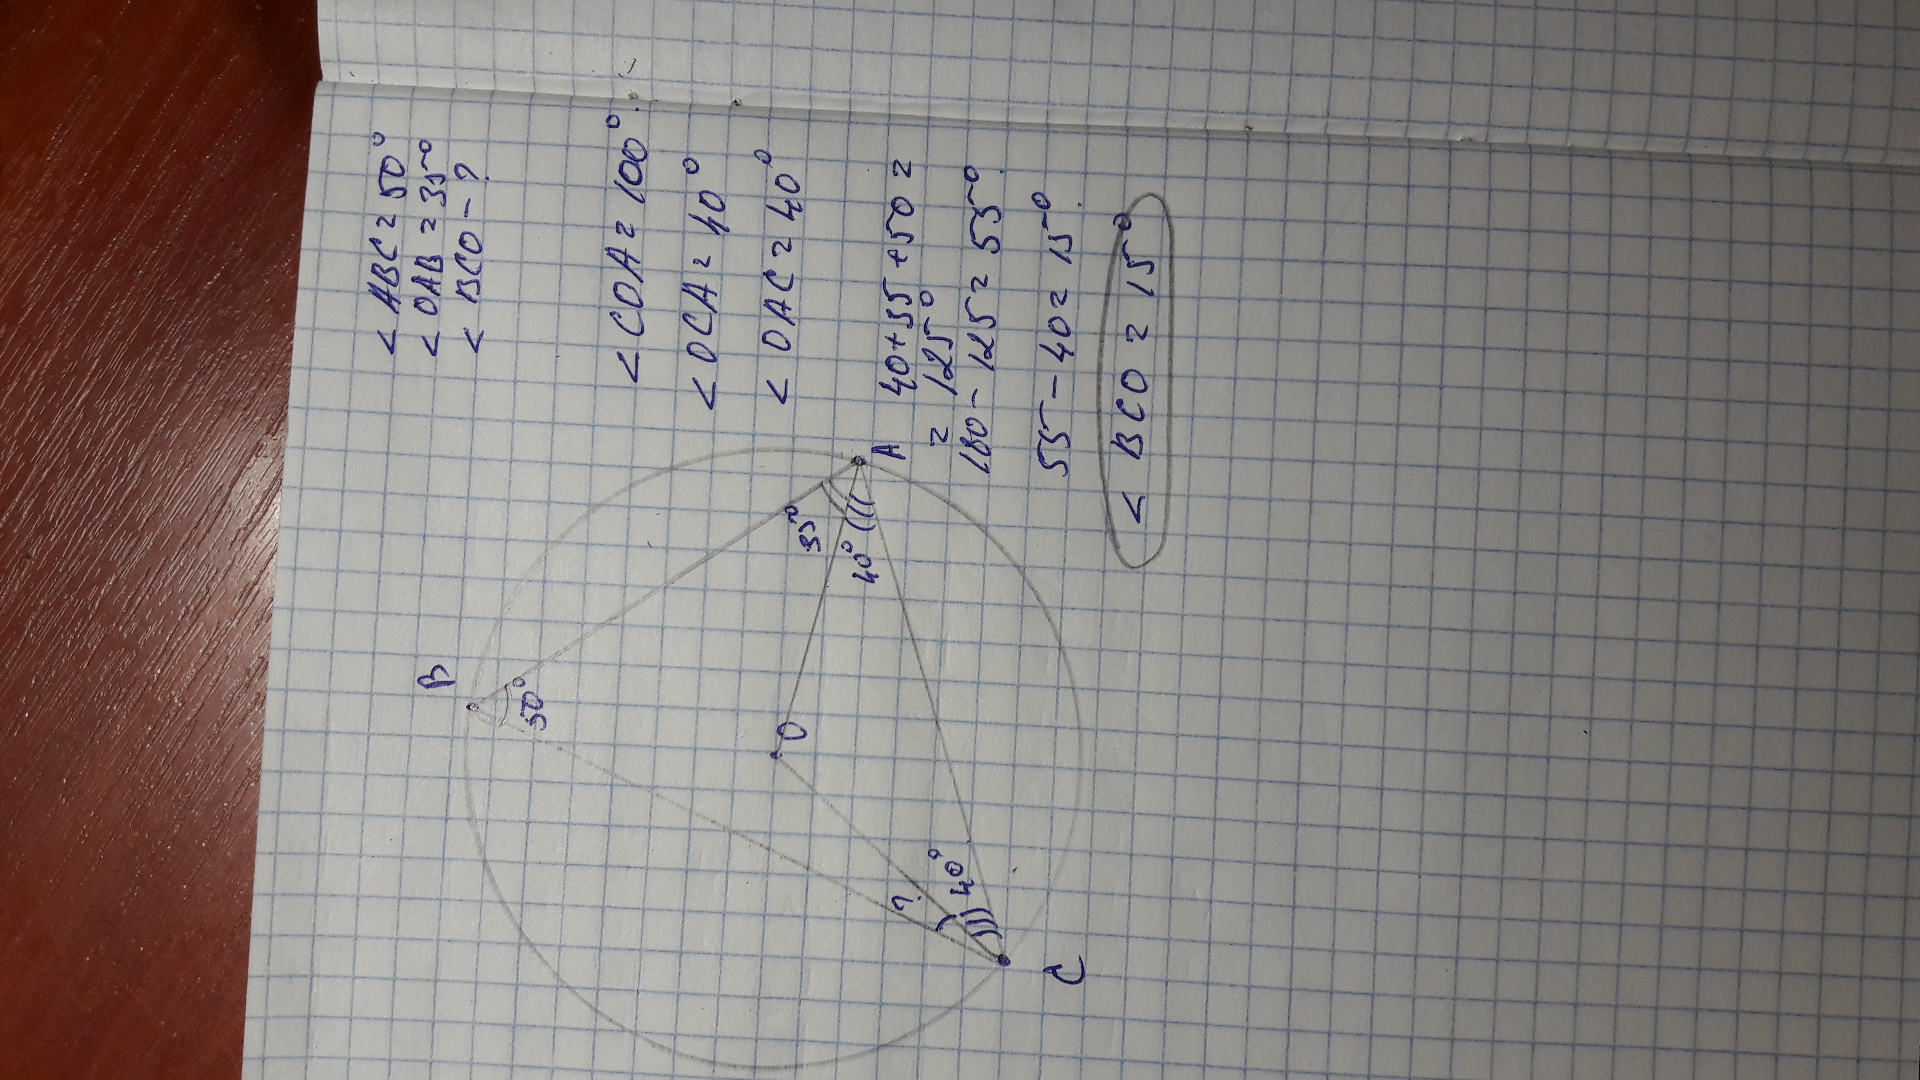 < ABC = 50°
< OAB = 35°
< BCO - ?
< COA = 100°.
< OCA = 40°
< OAC = 40°
40 + 35 + 50 =
= 125°
180 - 125 = 55°.
55 - 40 = 15°.
< BCO = 15°
B
50°
35°
A
40°
O
?
40°
C